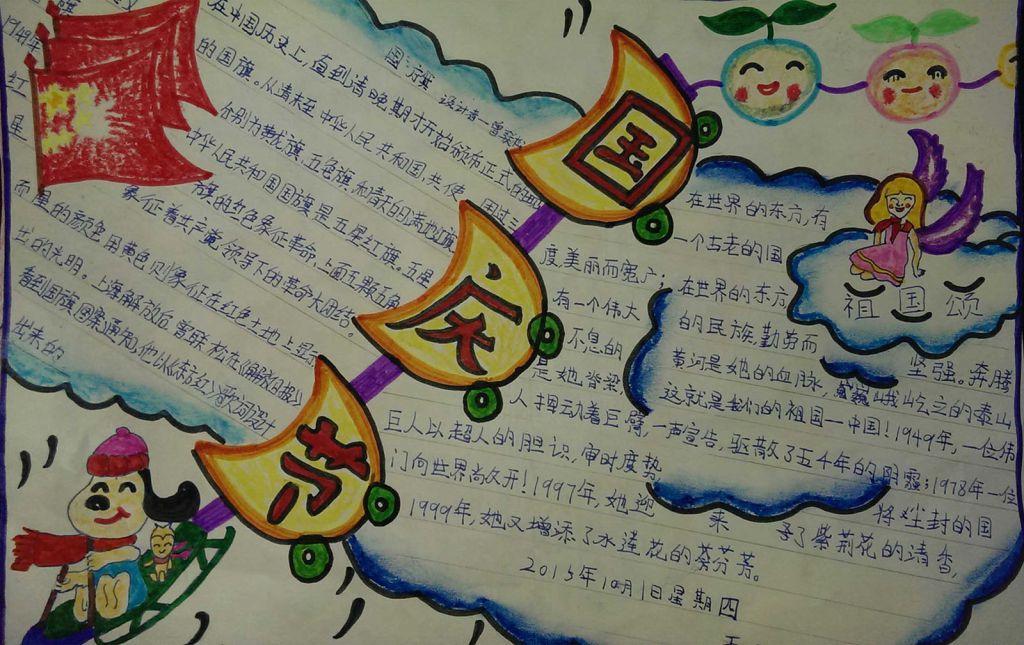 国旗
1949年
红
星
在中国历史上,直到清晚期才开始颁布正式的
的国旗。从清末至中华人民共和国,共使
分别为黄龙旗、五色旗、和青天白日满地红旗
中华人民共和国国旗是五星红旗。五星
旗的红色象征革命,上面五颗五角
象征着共产党领导下的革命大团结。
而星的颜色用黄色则象征在红色土地上显
出的光明。上海解放后,曾联松在《解放日报》
看到国旗图案通知,他以《东方红》为歌词设计
出来的
国
庆
节
在世界的东方,有
一个古老的国
度美丽而宽广;在世界的东方
有一个伟大的民族,勤劳而
坚强。奔腾
不息的黄河是她的血脉,巍巍峨屹立的泰山
是她脊梁这就是我们的祖国一中国!1949年,一位伟
人挥动着巨臂,一声宣告,驱散了五千年的阴霾;1978年一位
巨人以超人的胆识,审时度势
将尘封的国
门向世界尚久开!1997年,她迎
来
吾了紫荆花的清香,
1999年,她又增添了水莲花的芬芳。
2015年10月1日星期四
祖国颂